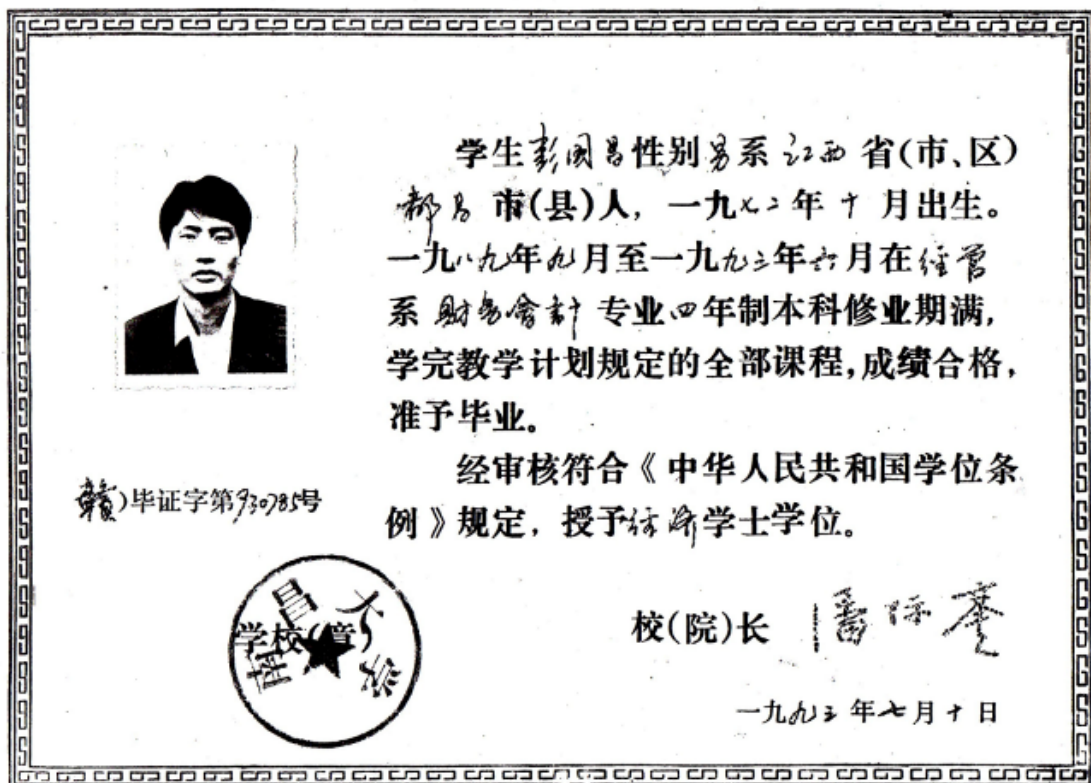 学生彭国昌性别男系江西省(市、区)
都昌市(县)人，一九七二年十月出生。
一九八九年九月至一九九三年六月在经管
系财务會计专业四年制本科修业期满，
学完教学计划规定的全部课程,成绩合格，
准予毕业。
经审核符合《中华人民共和国学位条
例》规定，授予经济学士学位。
赣)毕证字第930785号
学校(章)
南昌大学
校(院)长 潘际銮
一九九三年七月十日